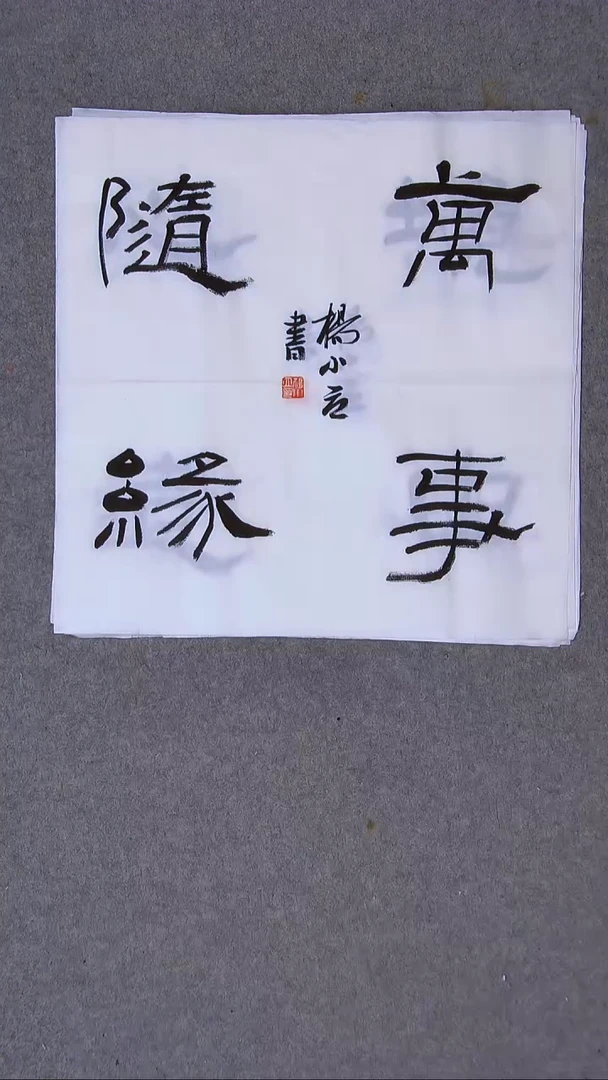 萬事
隨緣
楊小言
書